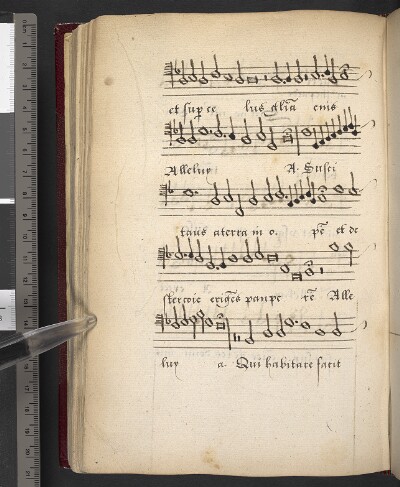 et sup ce lus gl̄ia eius
Alleluy A. Susci
tans a terra in o. pē et de
stercore erigēs paupe rē Alle
luy a. Qui habitare facit